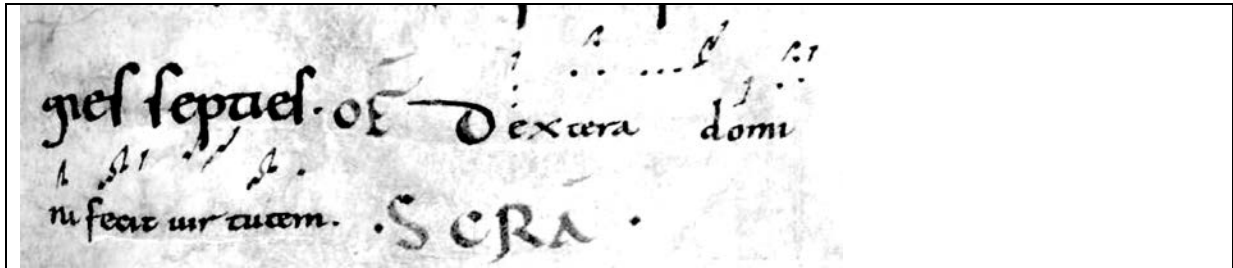 qies septies. OF Dextera domi
ni fecit uirtutem. · SCRA ·